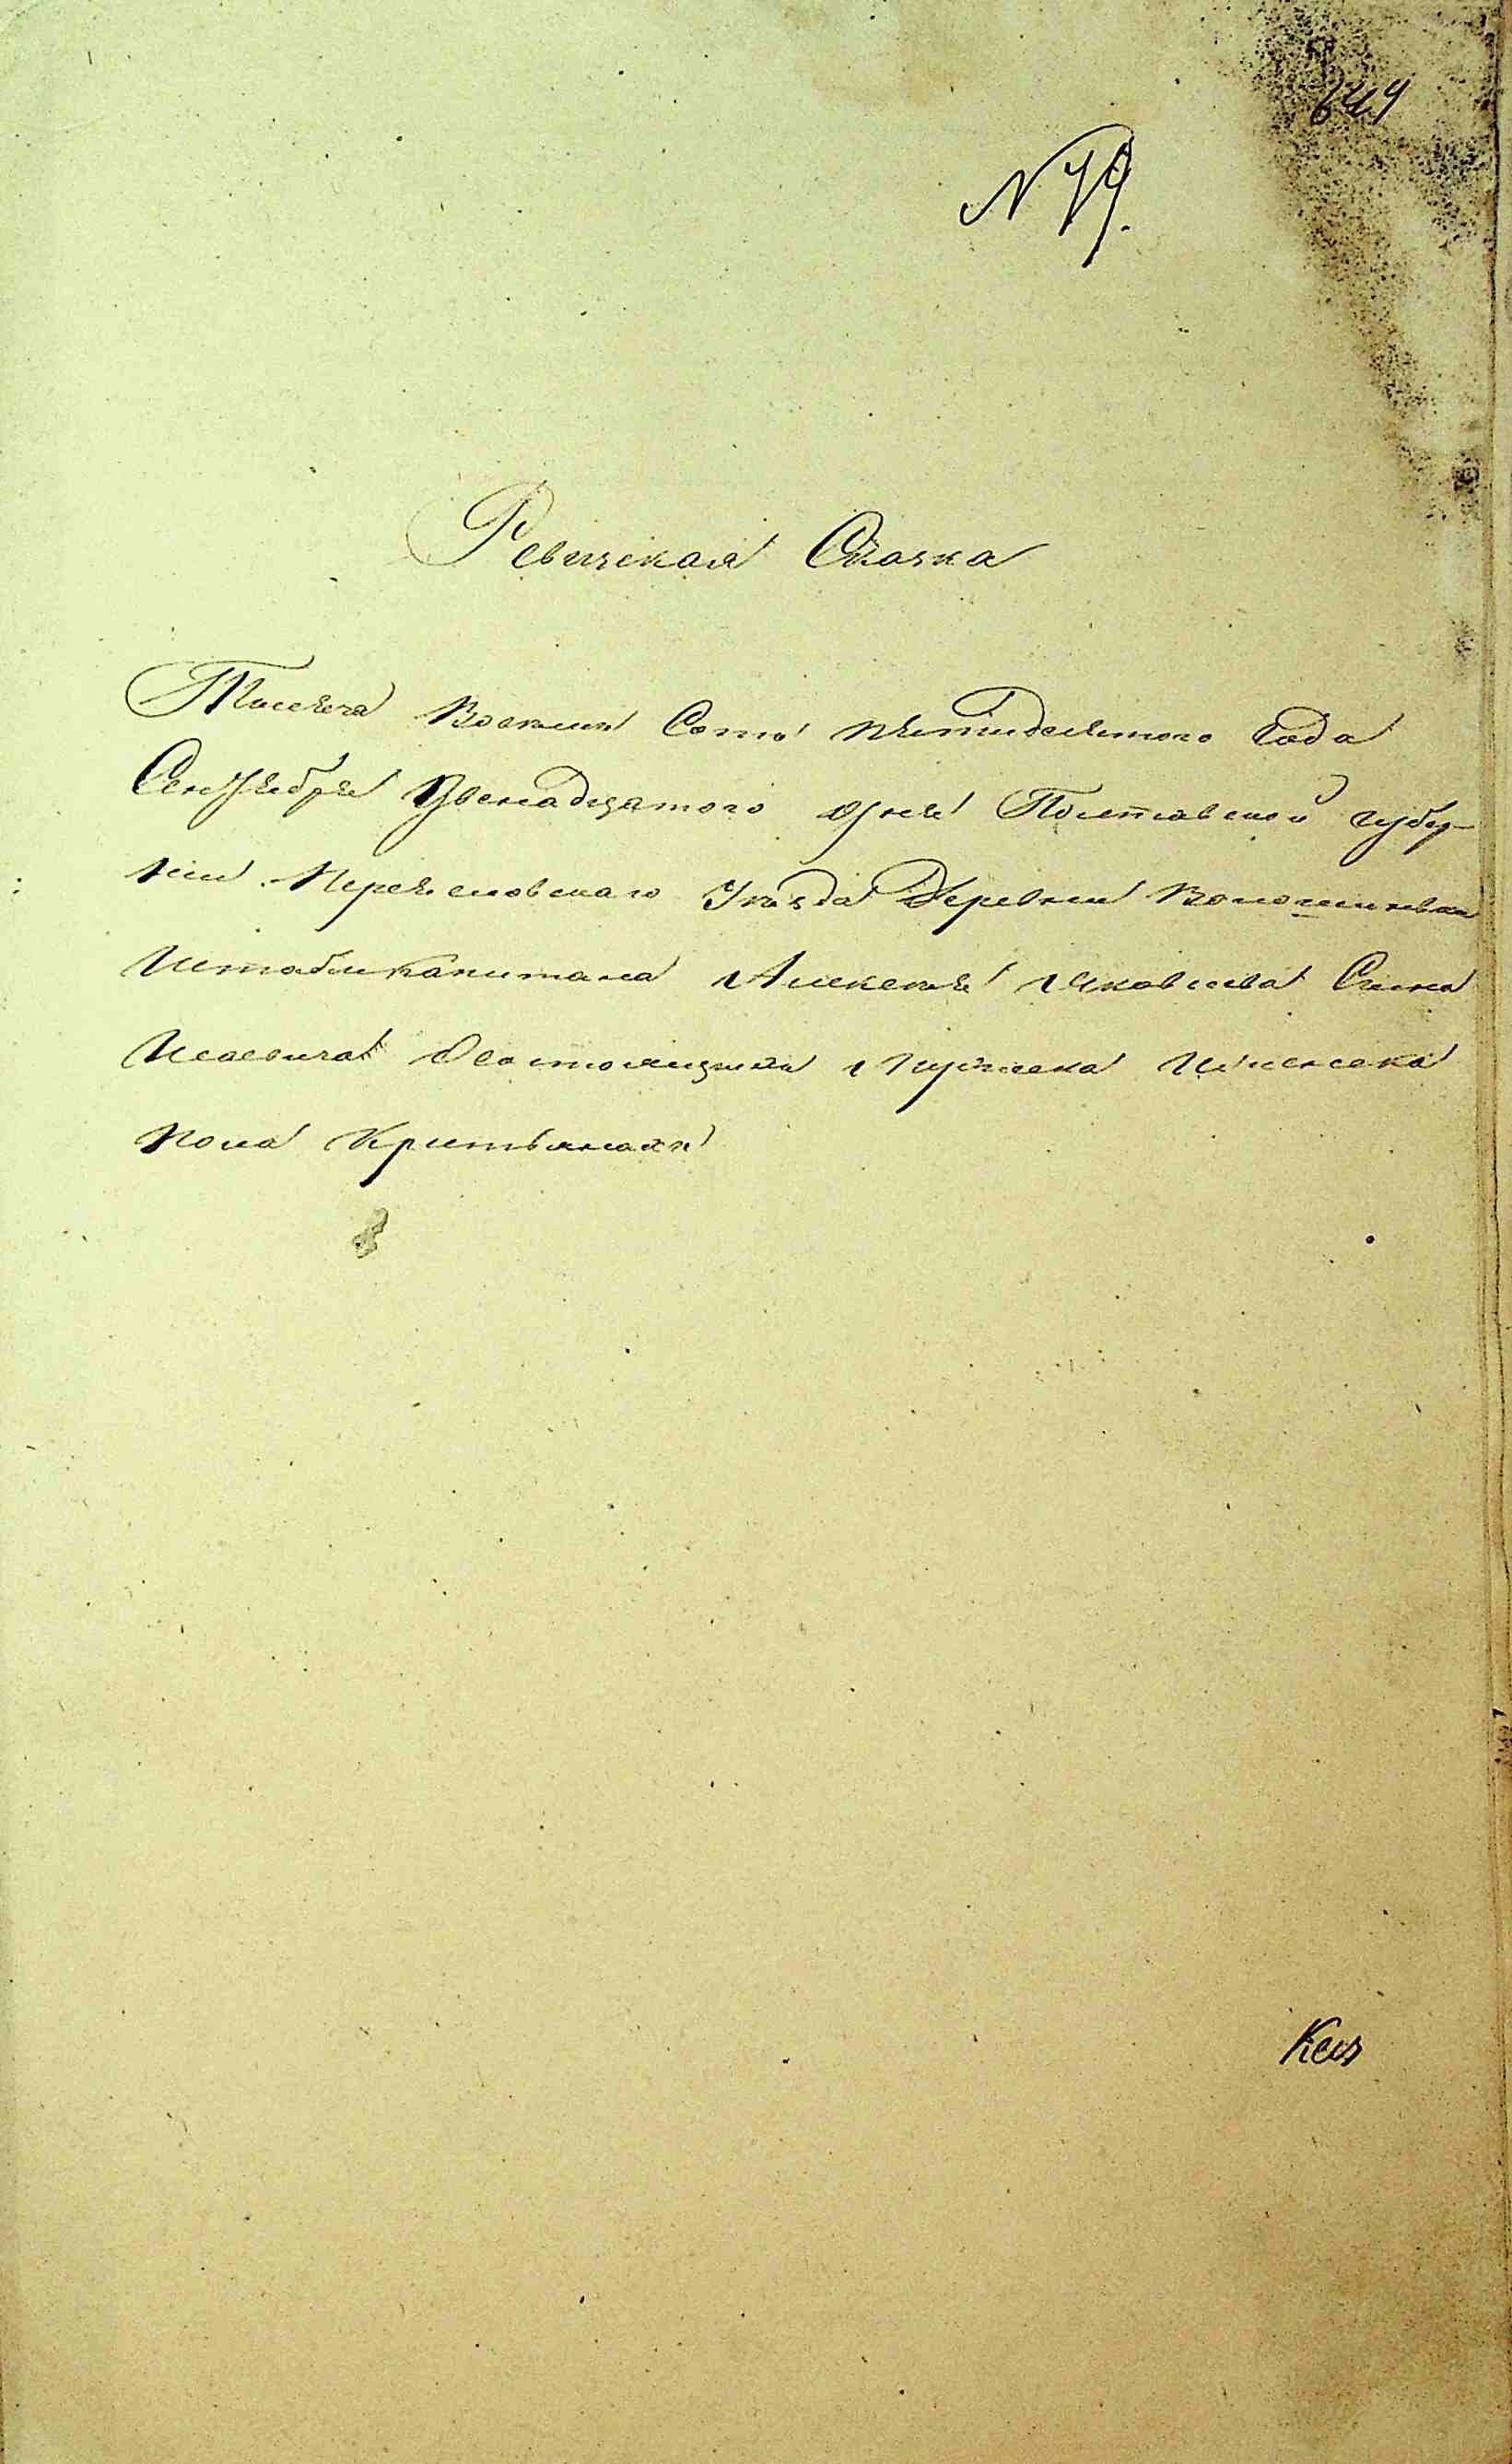 649
N 79.
Ревизская Сказка
Тысяча Восемь Сотъ пятидесятого Года
Сентября Двенадцатого дня Полтавской губер-
нии Переясловского Уезда Деревни Волошиновки
Штабскапитана Алексея Яковлева Сына
Исаевича Осостоящихъ Мужеска Иженска
пола Крестьянахъ